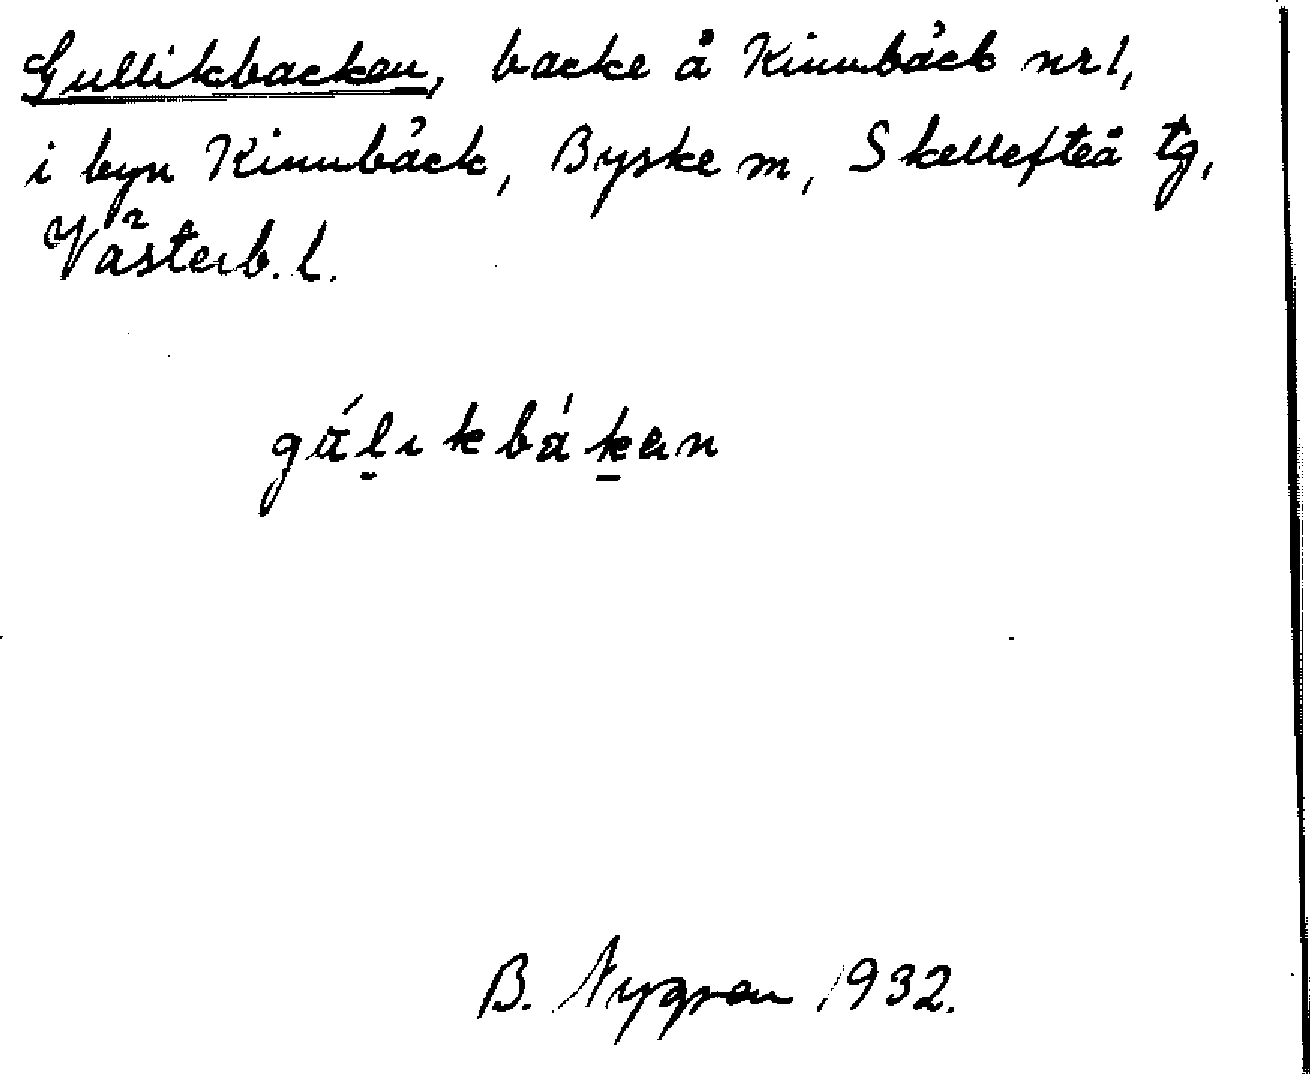 Gullikbacken, backe å Kinnbäck nr 1,
i byn Kinnbäck, Byske m, Skellefteå tg,
Västerb. l.
B. Nygren 1932.